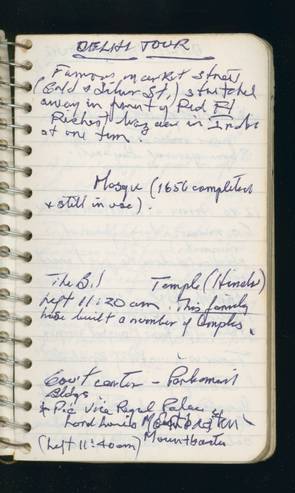 DELHI TOUR
Famous market street
(Gold & Silver St.) stretched
away in front of Red Ft
Richest bazaar in India
at one time.
Mosque (1656 completed
& still in use).
The Bil Temple (Hindu)
left 11:20 am. This family
have built a number of temples.
Gov't center - Parliament
Bldgs
& Pic Vice Regal Palace
Lord Louis
Mountbatten
(left 11:40 am)